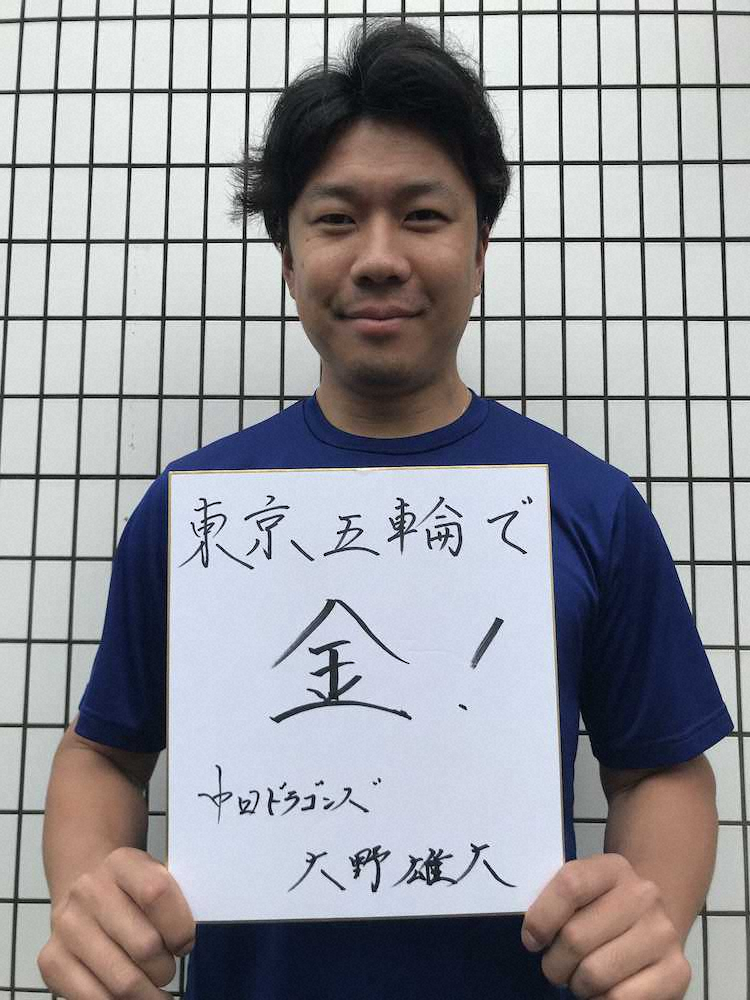 東京五輪で
金！
中日ドラゴンズ
大野雄大